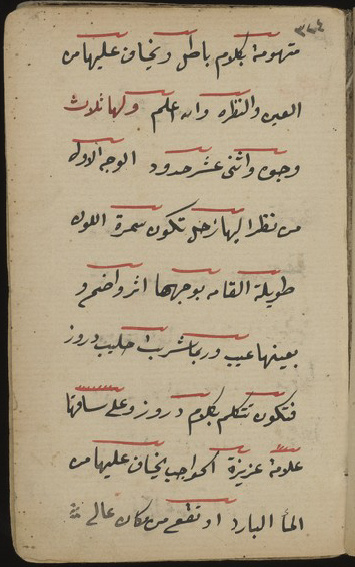 ٣٧٤
متهومة بكلام باطل ويخاف عليها من
العين والنظره والله اعلم ولها ثلاث
وجوه واثنى عشر حدود الوجه الاول
من نظر اليها زحل تكون سمرة اللون
طويلة القامه بوجهها اثر واضح و
بعينها عيب وربما شربت حليب دروز
فتكون تتكلم بكلام دروز وعلى ساقها
علامة عزيزة الحواجب يخاف عليها من
المأ البارد او تقع من مكان عالى